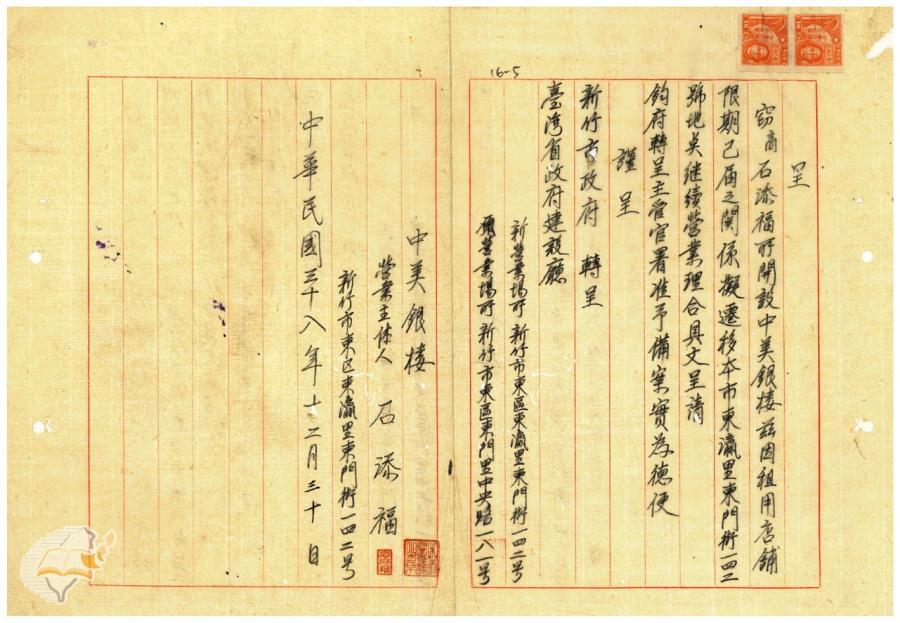 16-5
呈
窃商石添福所開設中美銀楼茲因租用店舖
限期已届之関係擬遷移本市東瀛里東門街一四二
號地点継続營業理合具文呈請
鈞府轉呈主管官署准予備案實為德便
謹呈
新竹市政府 轉呈
臺湾省政府建設廳
新營業場所 新竹市東區東瀛里東門街一四二号
原營業場所 新竹市東區東門里中央路一八一号
中美銀楼
營業主体人 石添福
新竹市東区東瀛里東門街一四二号
中華民國三十八年十二月三十日